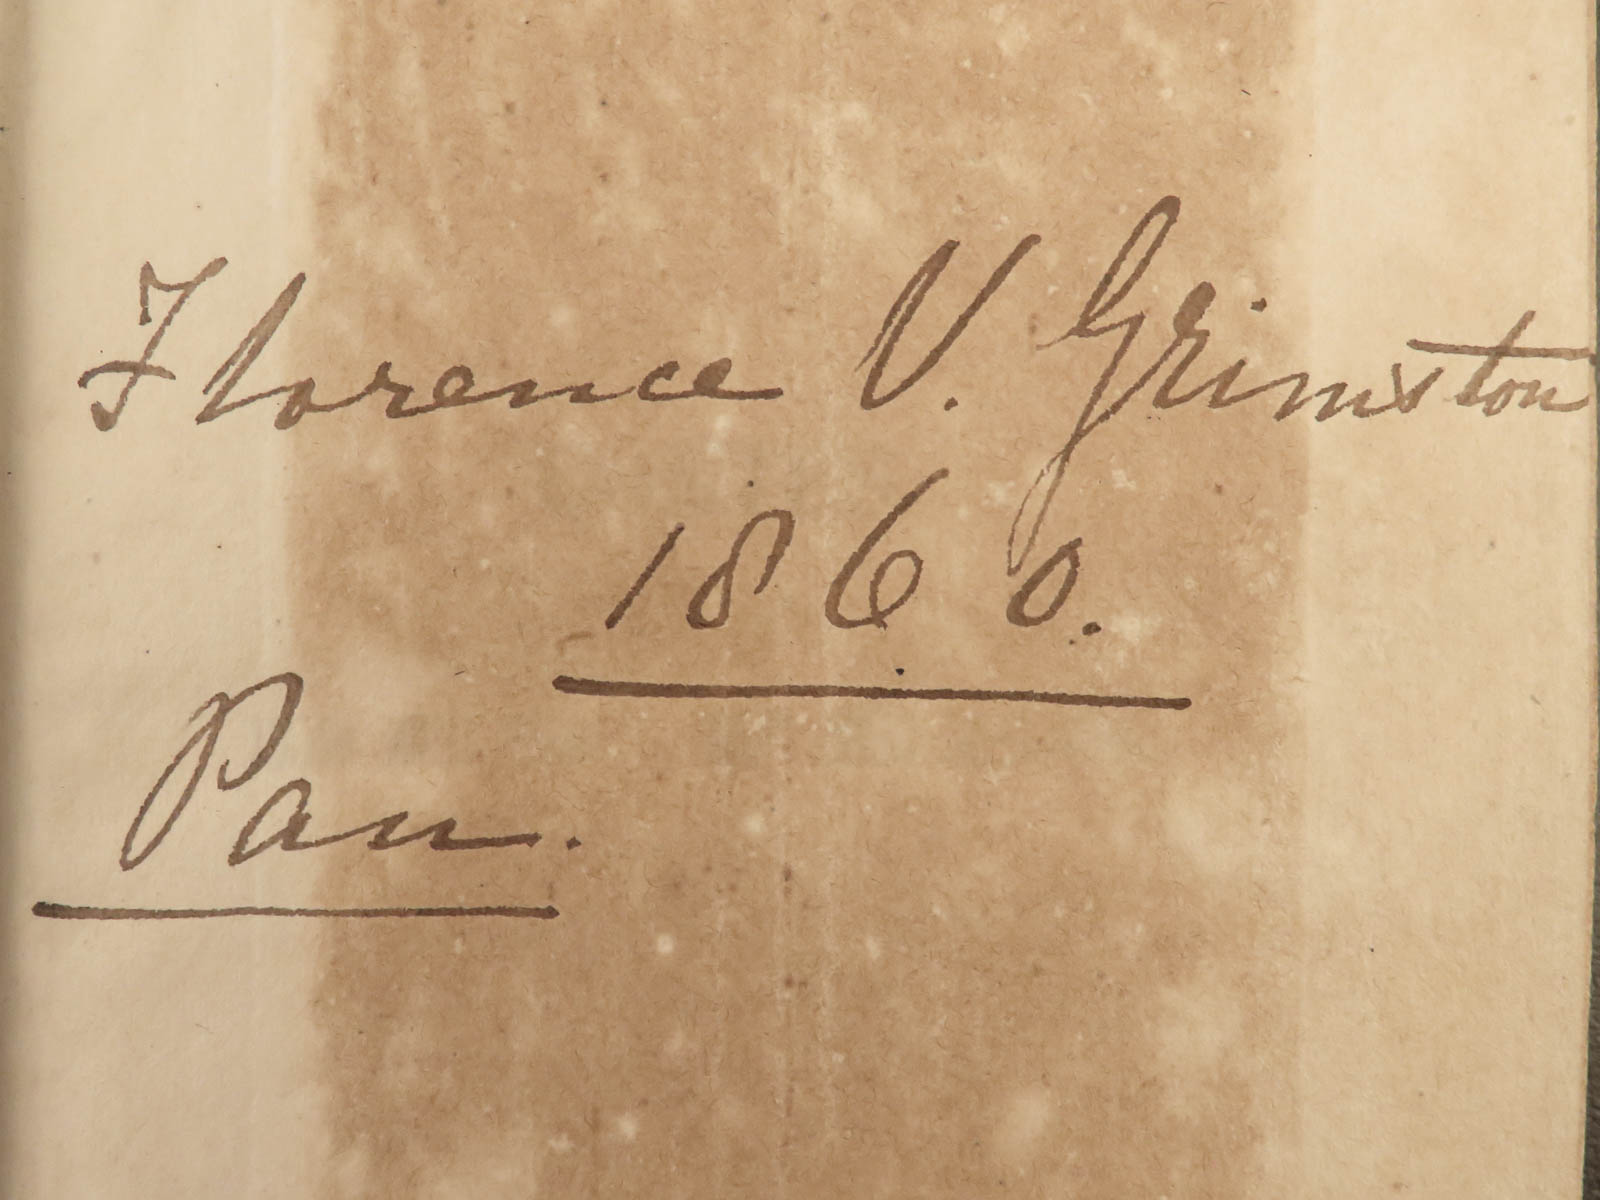 Florence V. Grimston
1860.
Pau.